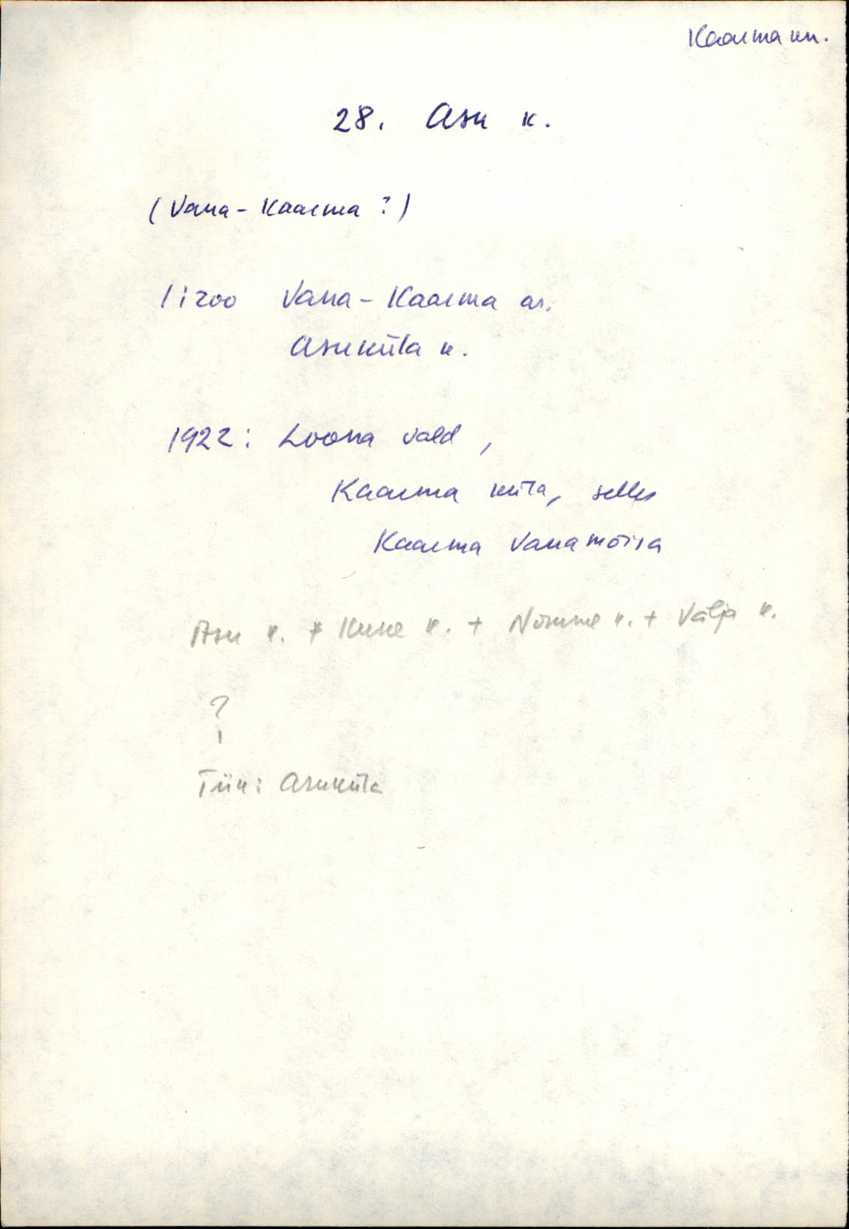 Kaarma khn.
28. Asu k.
(Vana-Kaarma?)
1:200 Vana-Kaarma as.
Asuküla k.
1922: Loona vald,
Kaarma küla, selles
Kaarma Vanamõisa
Asu k. + Kuke k. + Nõmme k. + Välja k.
?
Tiik: Asuküla